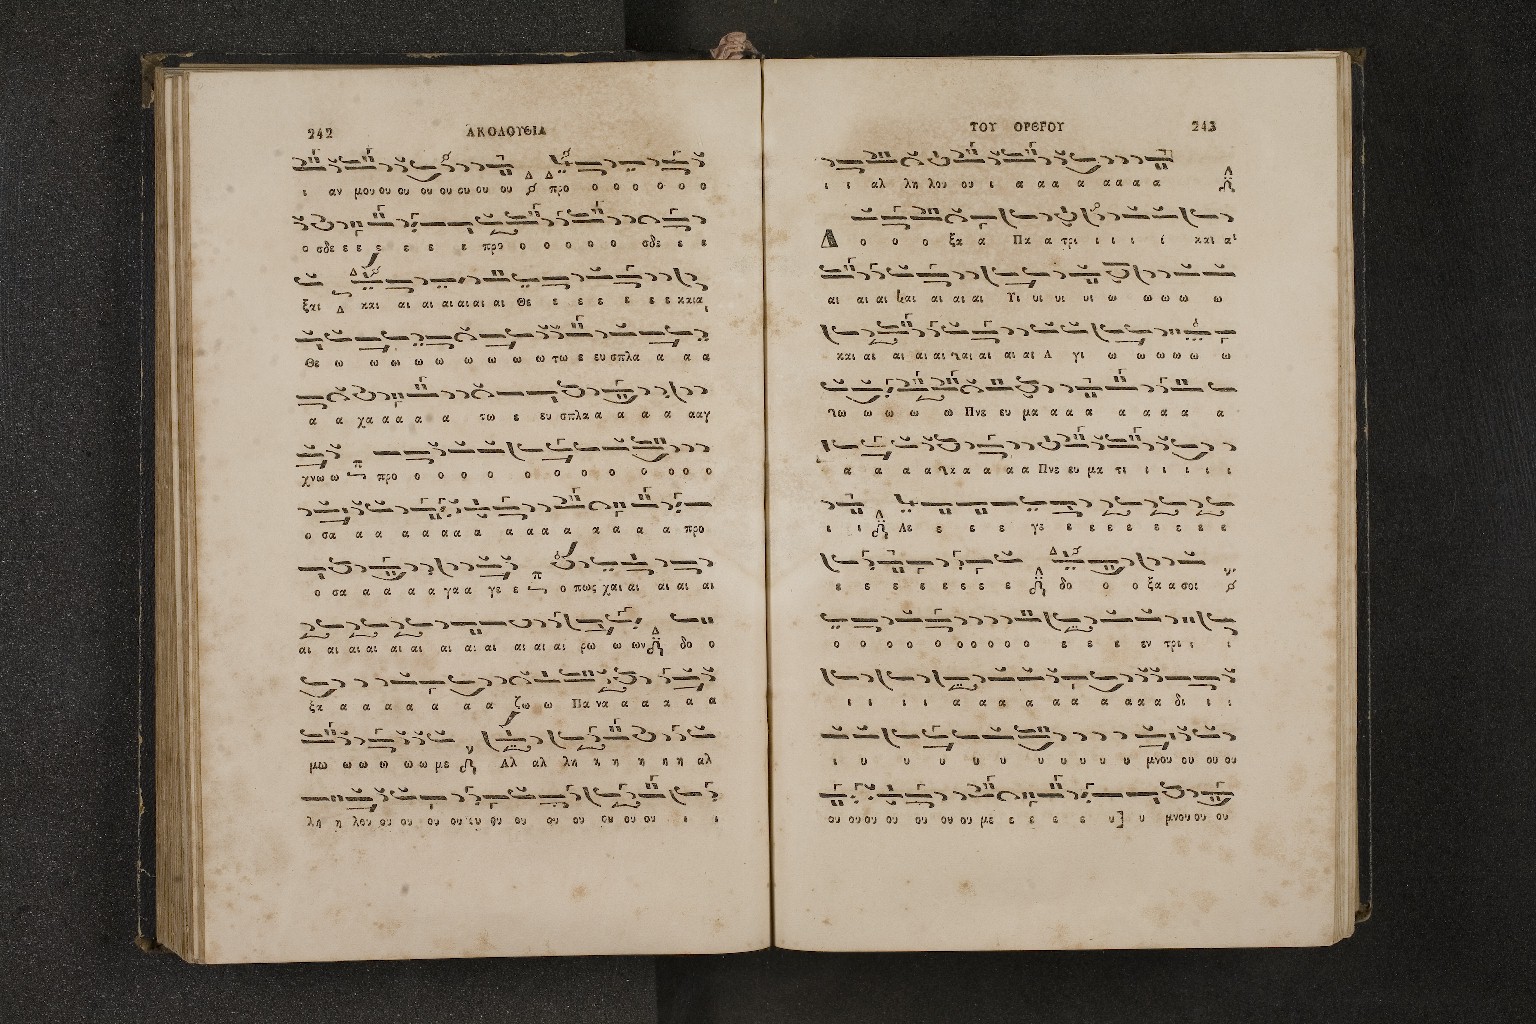 242 ΑΚΟΛΟΥΘΙΑ
ι αν μου ου ου ου ου ου ου ου προ ο ο ο ο ο ο
ο σδε ε ε ε ε ε ε προ ο ο ο ο ο σδε ε ε
ξαι και αι αι αι αι αι αι Θε ε ε ε ε ε ε και α
Θε ω ω ω ω ω ω ω ω ω τω ε ευ σπλα α α α
α α χα α α α α τω ε ευ σπλα α α α α α α γ
χνω ω προ ο ο ο ο ο ο ο ο ο ο ο ο
ο σα α α α α α α α α α α α α α α α προ
ο σα α α α α γα α γε ε ο πως χαι αι αι αι αι
αι αι αι αι αι αι αι αι αι αι αι αι ρω ω ων δο ο
ξα α α α α α α α ζω ω Πα να α α α α α
μω ω ω ω ω ω με Αλ αλ λη η η η η η αλ
λη η λου ου ου ου ου ου ου ου ου ου ου ου ου ι ι
ΤΟΥ ΟΡΘΡΟΥ 243
ι ι αλ λη λου ου ι α α α α α α α
Δ ο ο ο ξα α Πα α τρι ι ι ι ί και αι
αι αι αι και αι αι αι Υι υι υι υι ω ω ω ω ω
και αι αι αι αι και αι αι αι αι Α γι ω ω ω ω ω ω
ω ω ω ω Πνε ευ μα α α α α α α α α
α α α α α α α α Πνε ευ μα τι ι ι ι ι ι ι
ι ι Λε ε ε ε γε ε ε ε ε ε ε ε ε
ε ε ε ε ε ε ε ε δο ο ο ξα α σοι
ο ο ο ο ο ο ο ο ο ο ε ε ε εν τρι ι ι
ι ι ι ι α α α α α α α α α α δι ι ι
ι υ υ υ υ υ υ υ υ υ μνου ου ου ου
ου ου ου ου ου ου ου με ε ε ε ε υ] υ μνου ου ου